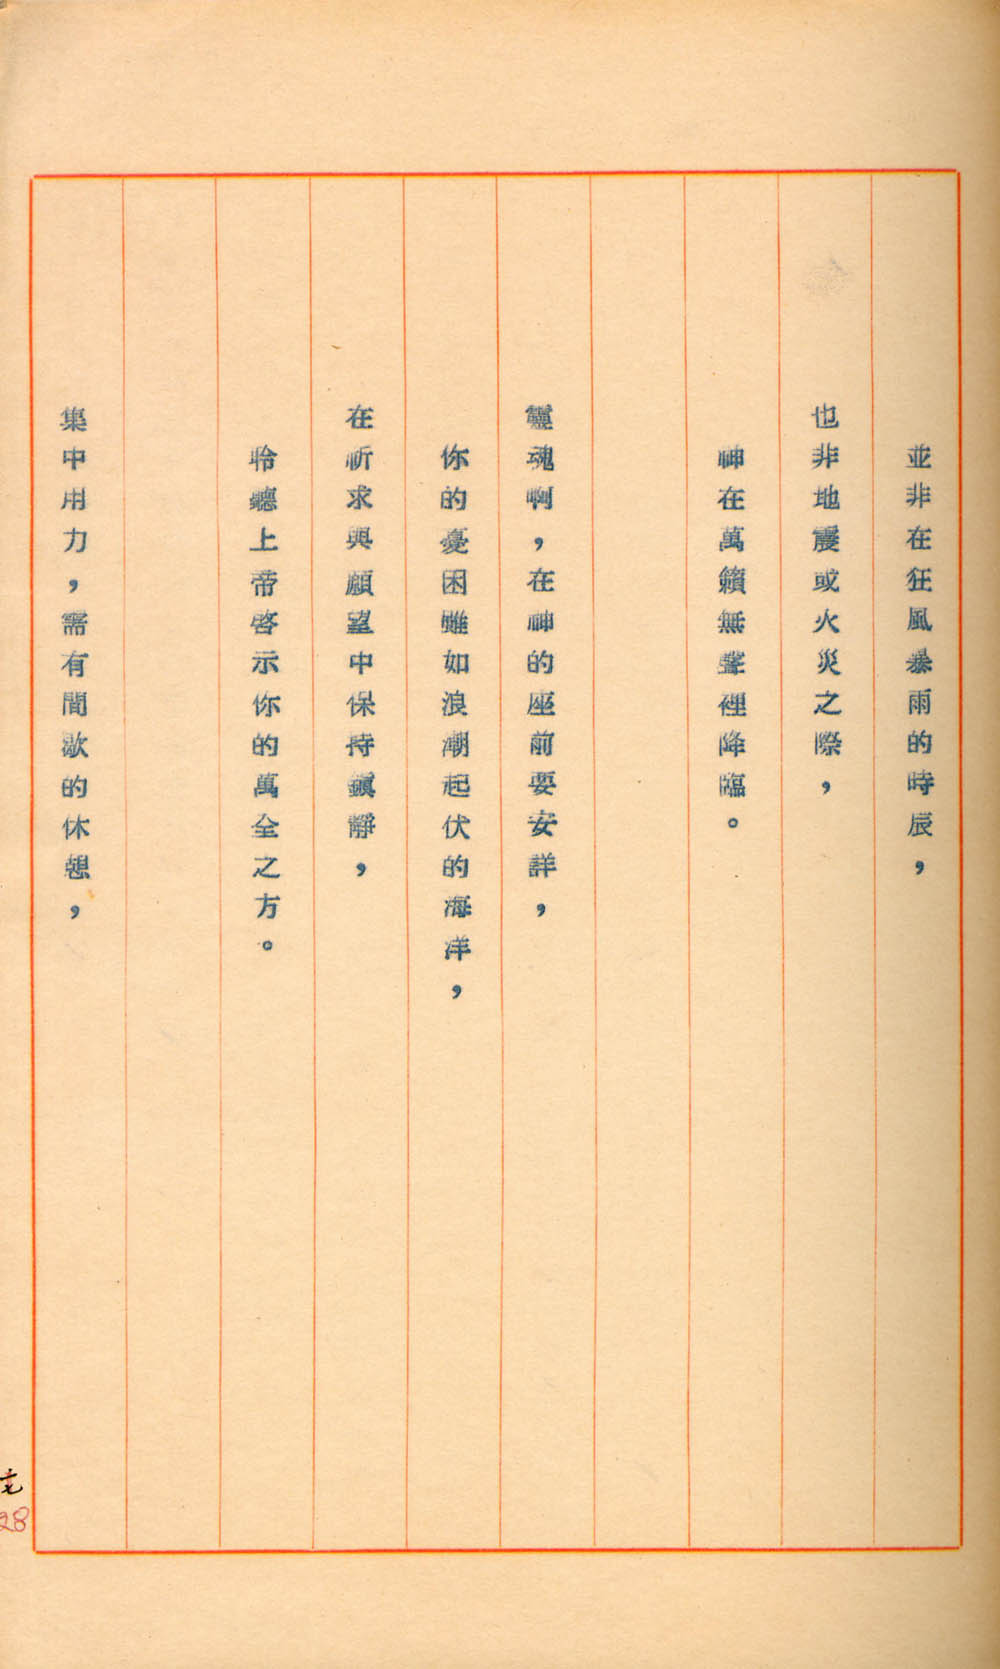 並非在狂風暴雨的時辰，
也非地震或火災之際，
神在萬籟無聲裡降臨。
靈魂啊，在神的座前要安詳，
你的憂困雖如浪潮起伏的海洋，
在祈求與願望中保持鎮靜，
聆聽上帝啓示你的萬全之方。
集中用力，需有間歇的休憩，
28